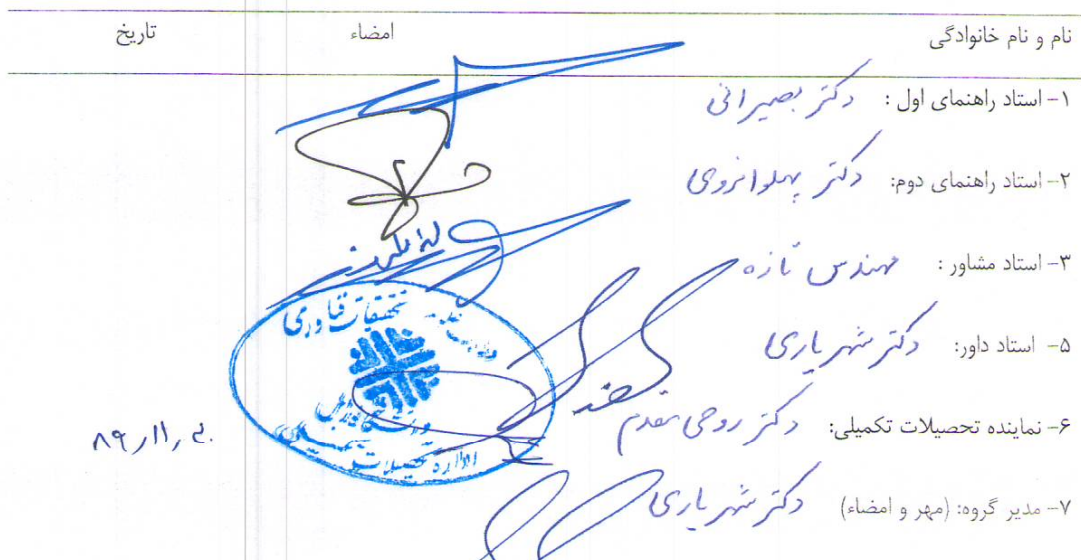 نام و نام خانوادگی امضاء تاریخ
۱- استاد راهنمای اول : دکتر بصیرانی
۲- استاد راهنمای دوم: دکتر پهلوانروی
۳- استاد مشاور : مهندس تازه
۵- استاد داور: دکتر شهریاری
۶- نماینده تحصیلات تکمیلی: دکتر روحی مقدم
۷- مدیر گروه: (مهر و امضاء) دکتر شهریاری
تحقیقات فناوری
اداره تحصیلات تکمیلی